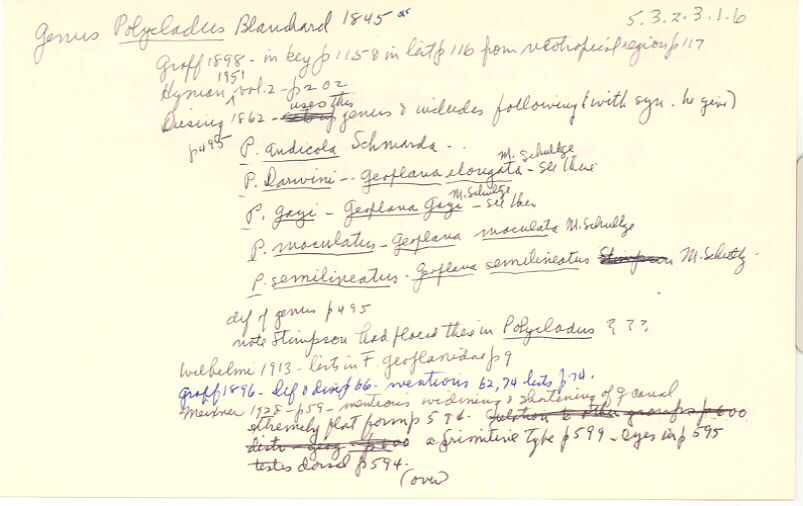 5.3.2.3.1.6
Genus Polycladus Blanchard 1845
Graff 1898 - in key p 1158 in list p 116 from neotropical region p 117
Hyman 1951 vol. 2 - p 202
Diesing 1862 - uses this genus & includes following (with syn. he give)
p495
P. andicola Schmarda - ..
P. Darwini -- Geoplana elongata M. Schultze - see there
P. gayi - Geoplana Gayi M. Schultze - see then
P. maculatus - Geoplana maculata M. Schultze
P. semilineatus - Geoplana semilineatus Stimpson M. Schultz.
def of genus p 495
note Stimpson had placed these in Polycladus ? ? ?.
Wilhelmi 1913 - lists in F. Geoplanidae p 9
Graff 1896 - def & disc p 66 - mentions 62, 74 lists p. 74.
Meixner 1928 - p59 - mentions widening & shortening of g canal
extremely flat form p 594. relation to other groups p 600
distr - geog - p 600 a primitive type p 599 - eyes in p 595
testes dorsal p 594.
(over)